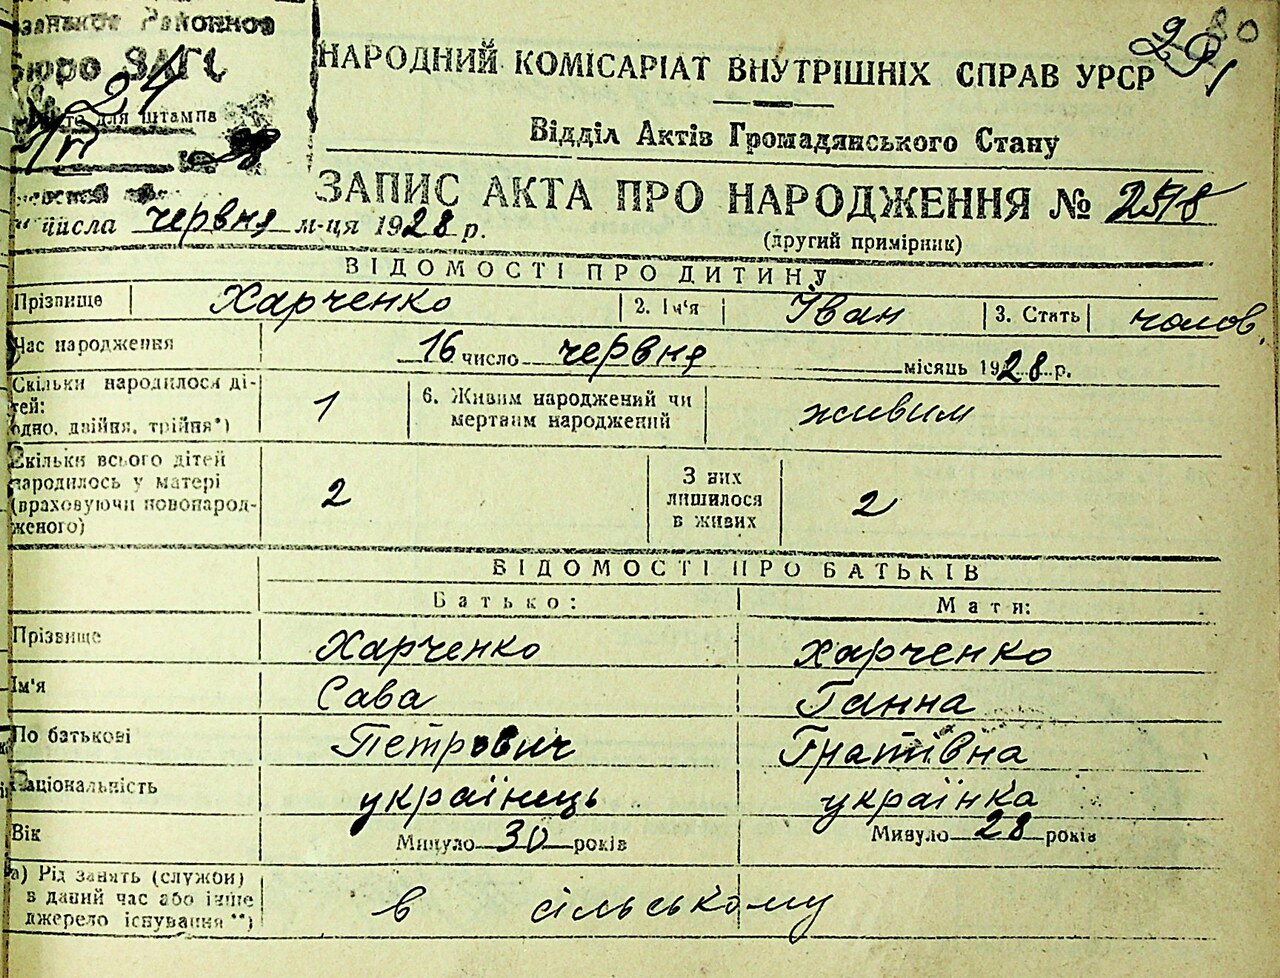 Районное
Бюро ЗАГС
24
для штампа
80
291
НАРОДНИЙ КОМІСАРІАТ ВНУТРІШНІХ СПРАВ УРСР
Відділ Актів Громадянського Стану
ЗАПИС АКТА ПРО НАРОДЖЕННЯ № 2578
(другий примірник)
" числа червня м-ця 1928 р.
ВІДОМОСТІ ПРО ДИТИНУ
Прізвище Харченко 2. Ім'я Іван 3. Стать чолов.
Час народження 16 число червня місяць 1928 р.
Скільки народилося ді-
тей:
одно, двійня, трійня*) 1 6. Живим народжений чи
мертвим народжений живим
Скільки всього дітей
народилось у матері
(враховуючи новонарод-
женого) 2 З них
лишилося
в живих 2
ВІДОМОСТІ ПРО БАТЬКІВ
Батько: Мати:
Прізвище Харченко Харченко
Ім'я Сава Ганна
По батькові Петрович Гнатівна
Національність українець українка
Вік Минуло 30 років Минуло 28 років
а) Рід занять (служби)
в даний час або інше
джерело існування**) в сільському